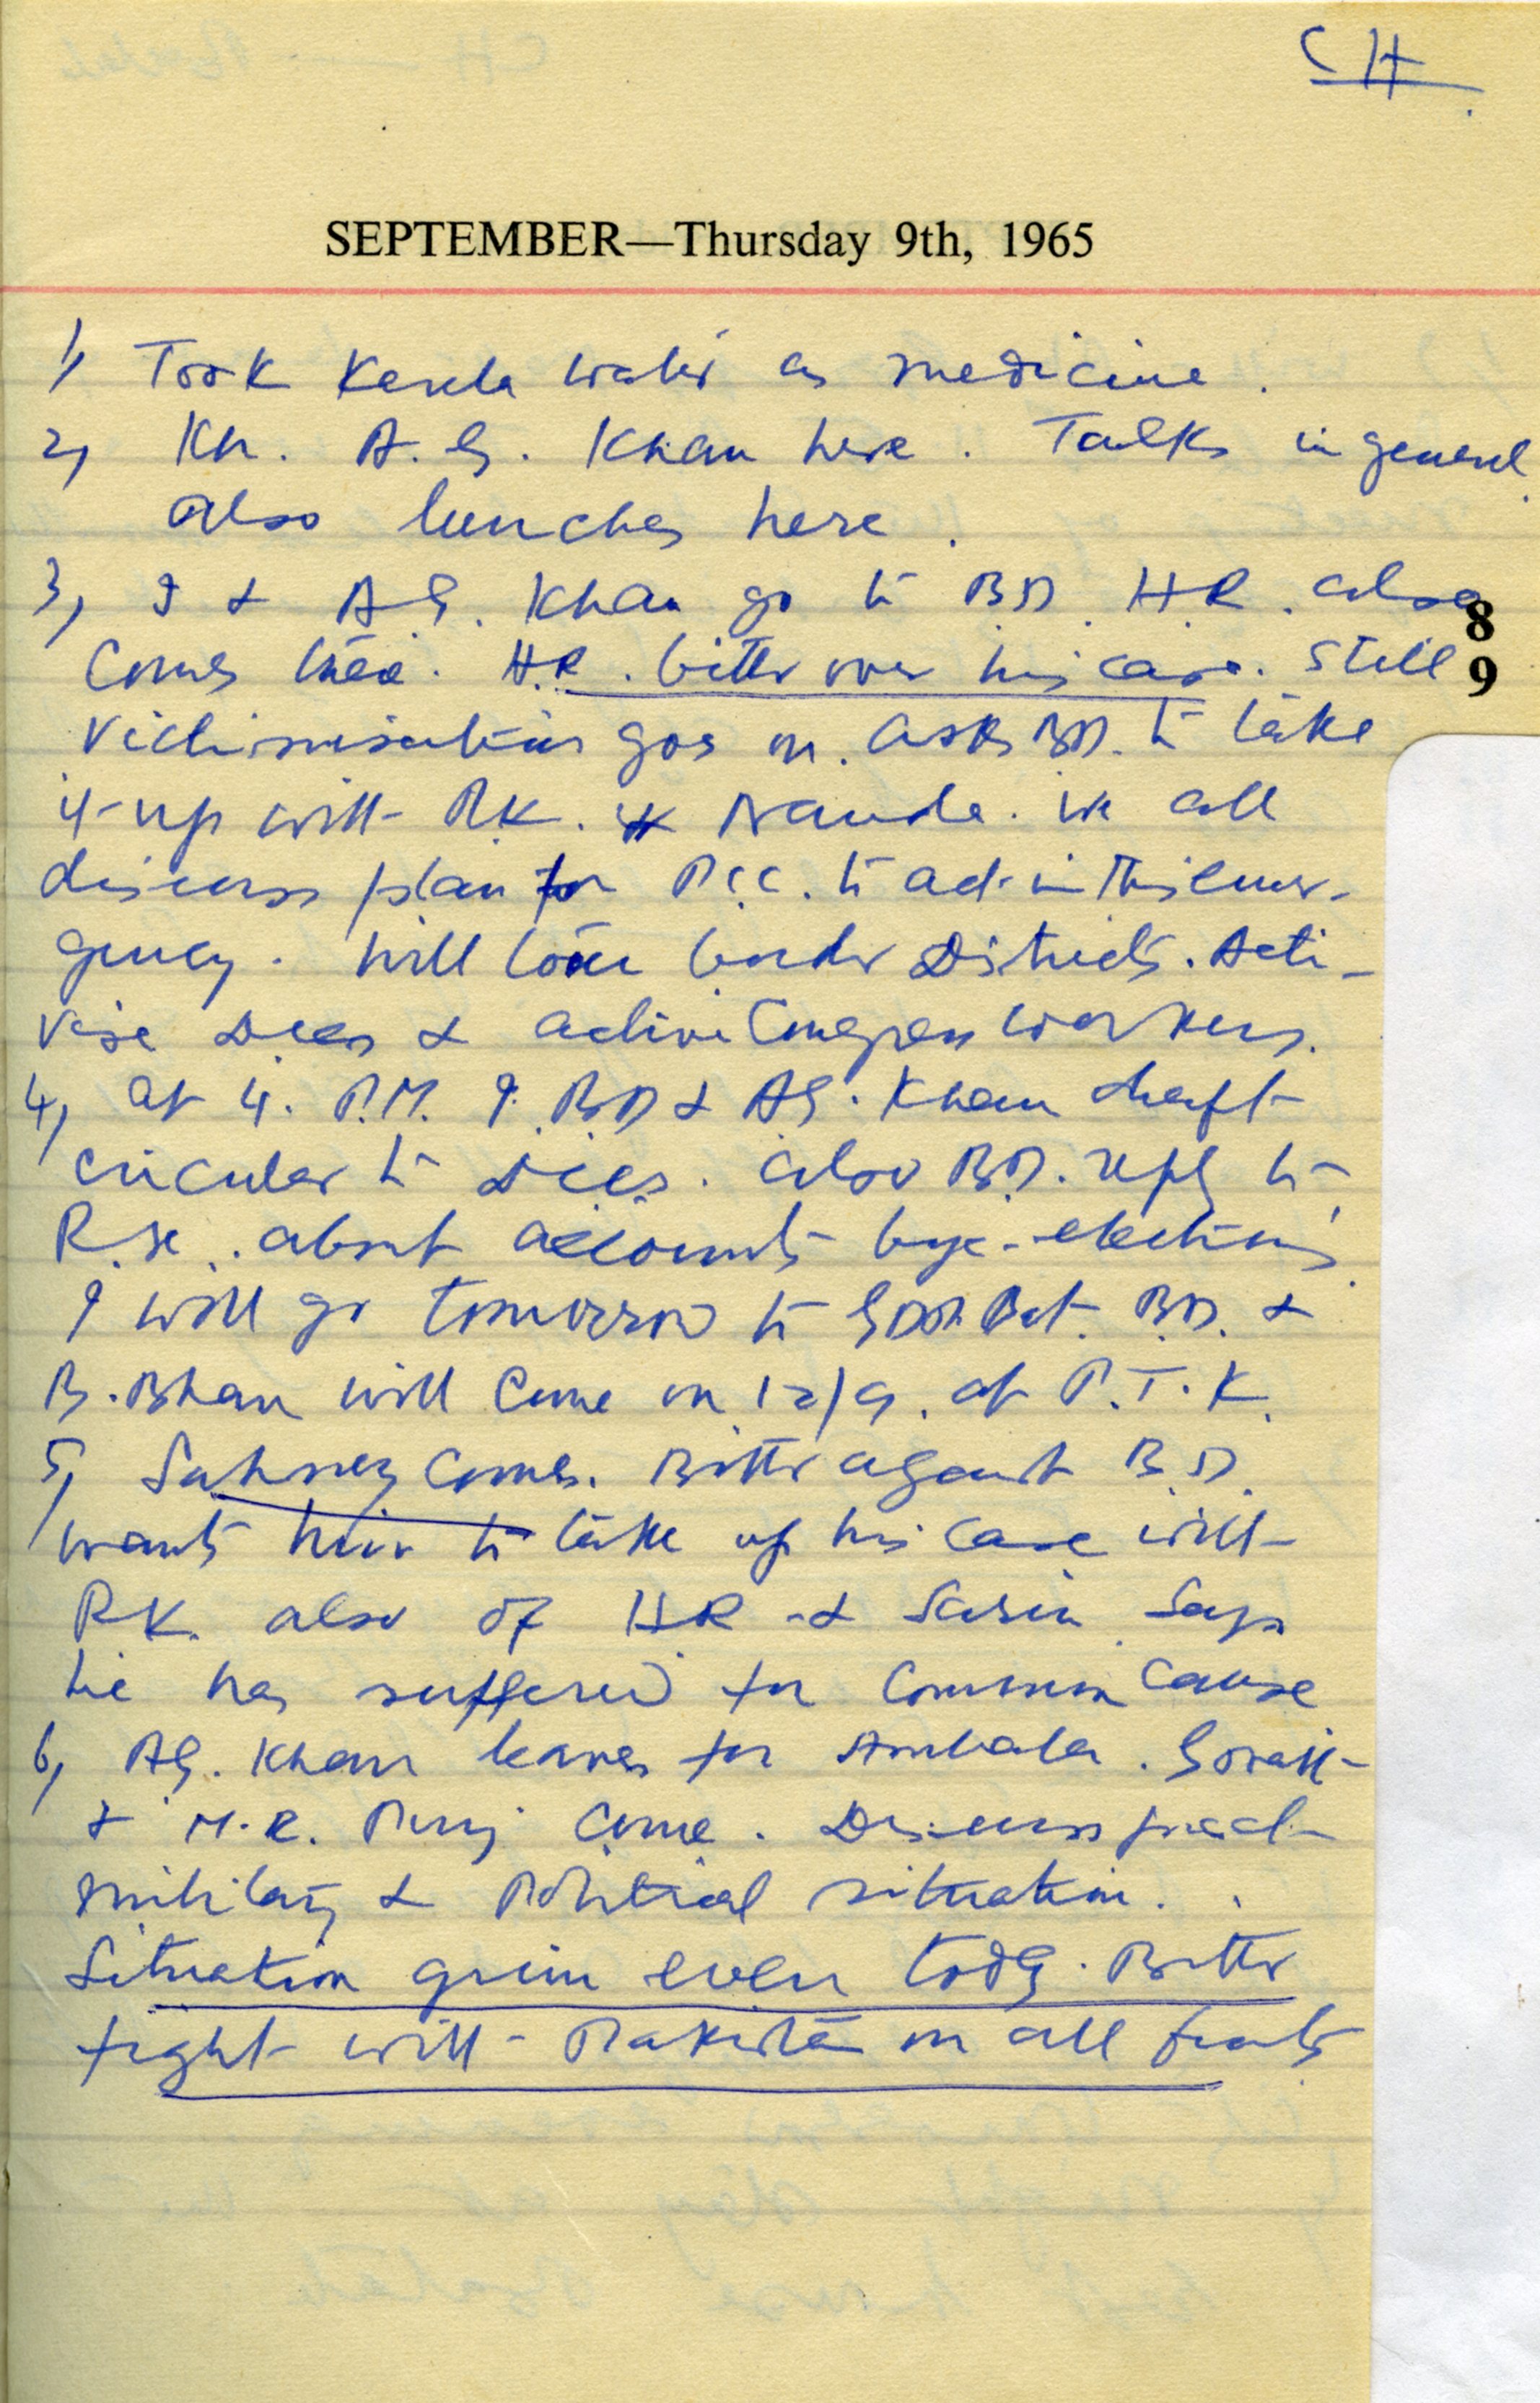 CH
SEPTEMBER—Thursday 9th, 1965
1) Took Karela water as medicine.
2) Kh. A. G. Khan here. Talks in general
also lunches here.
3) I & A G. Khan go to B.D. H.R. also
8
Comes there. H.R. bitter over his case. Still
9
Victimisation goes on. asks BD. to take
it up with RK. & Nanda. We all
discuss plan for P.C.C. to act in this emer-
gency. Will tour border Districts. Acti-
vise Dccs & active Congress workers.
4) at 4. P.M. I. BD & AG. Khan draft
circular to Dccs. also BD. reply to
R.K. about accounts bye-elections
I will go tomorrow to B.D. &
B. Bhan will come on 12/9. at P.T.K.
5) Sahney comes. Bitter against B.D.
wants him to take up his case with
RK. also of HR & Sarin. Says
he has suffered for Common Cause
6) AG. Khan leaves for Ambala.
& M.R. come. Discuss
military & Political situation.
Situation grim even today. Bitter
fight with Pakistan on all fronts